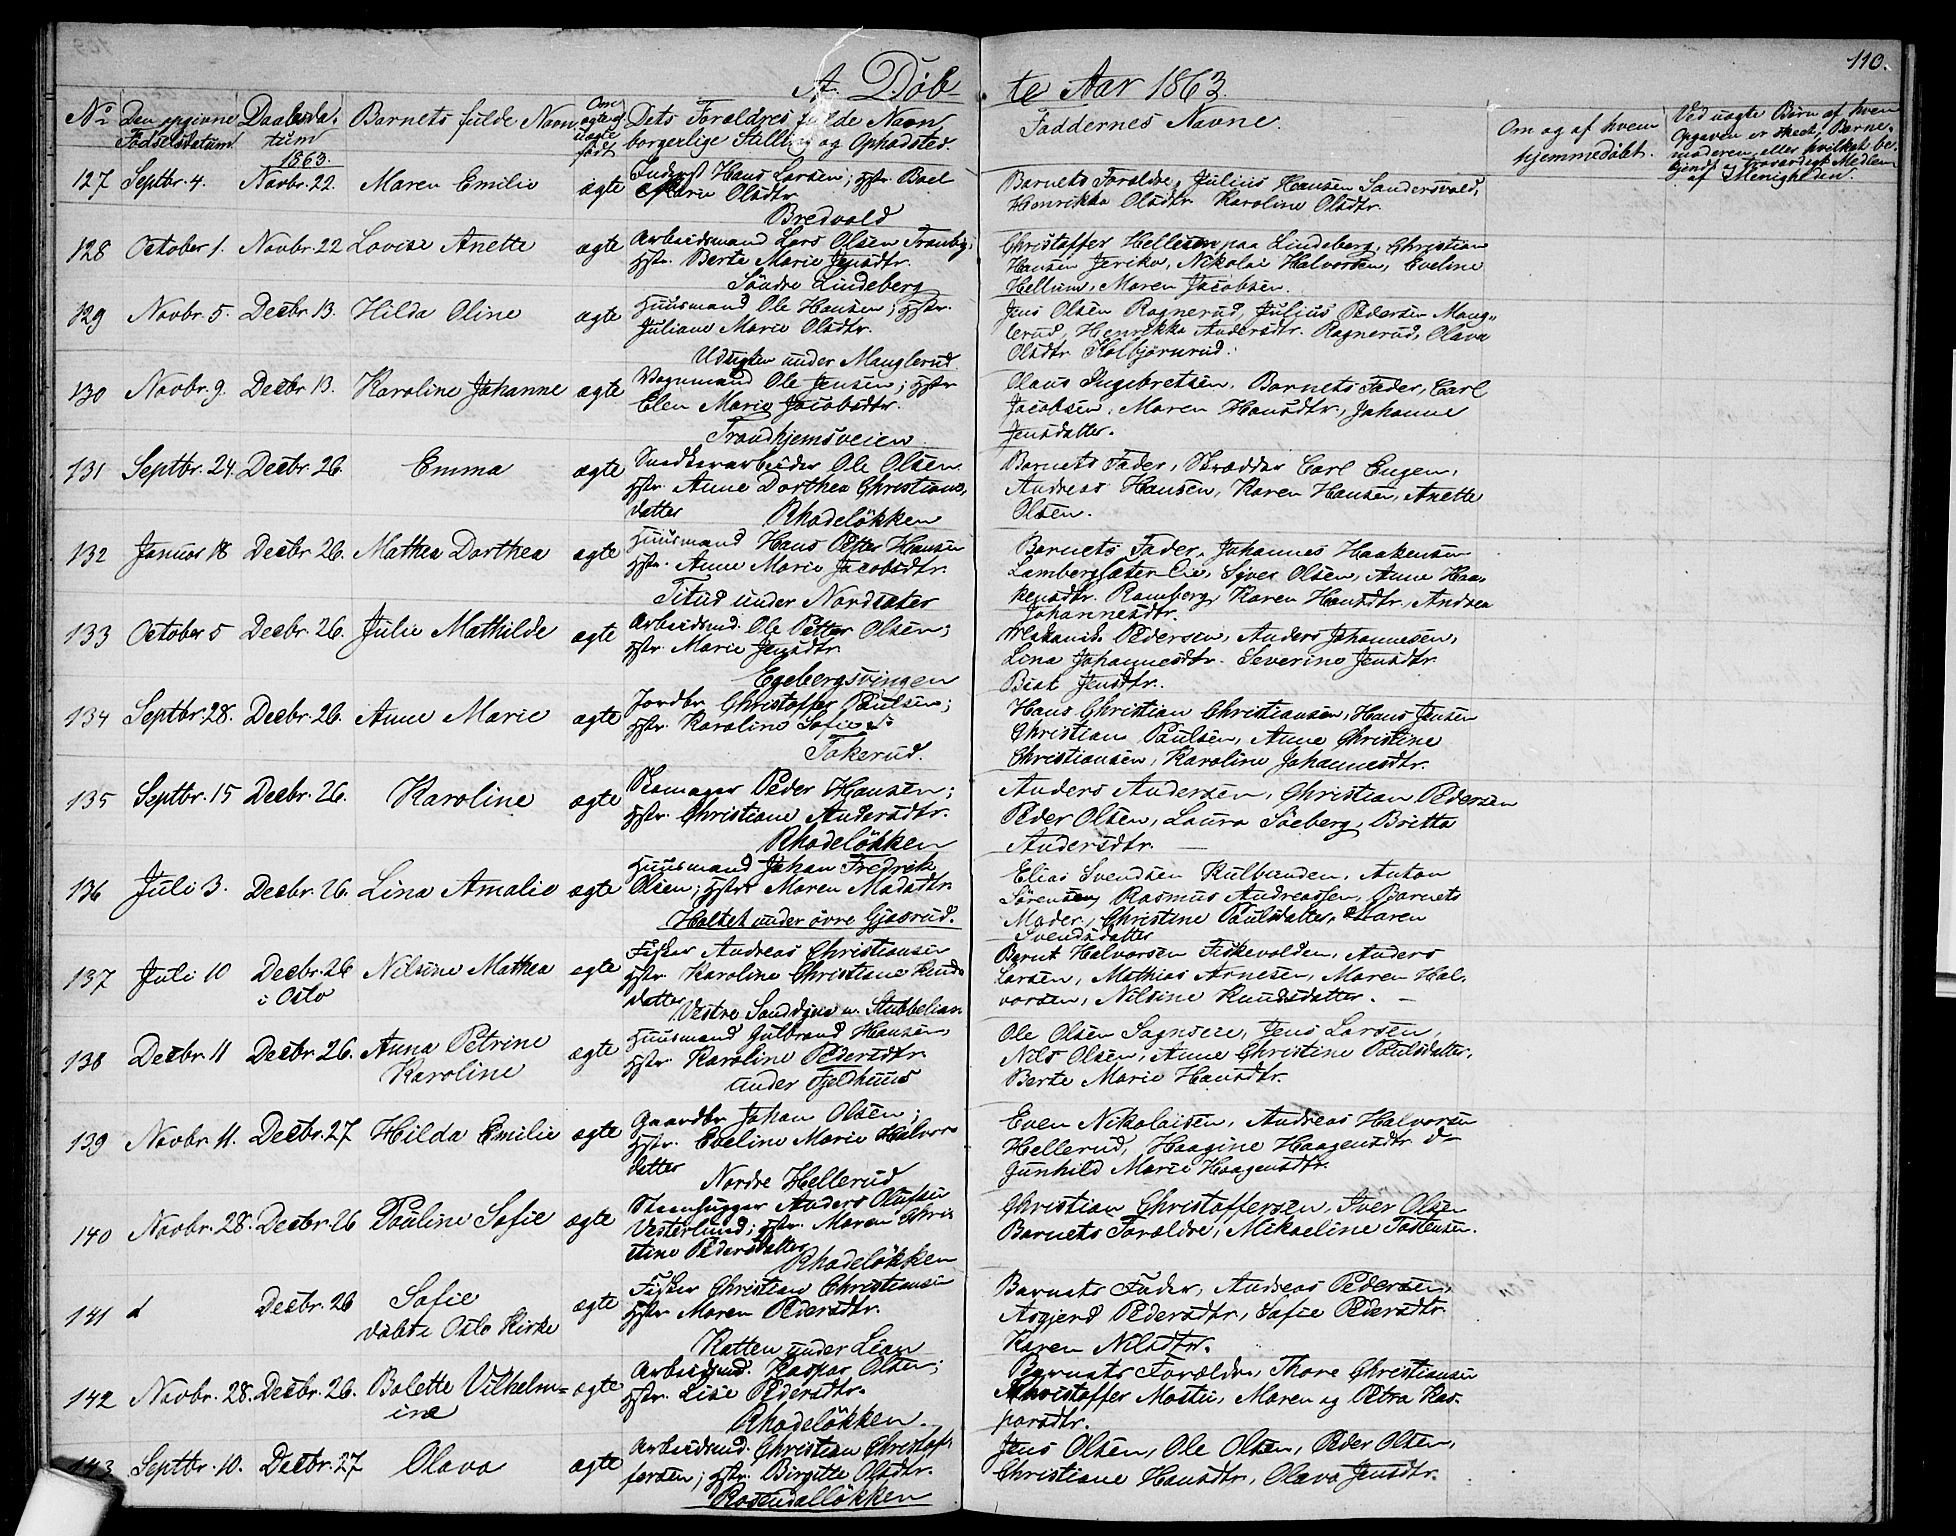 110.
A. Døbte Aar 1863.
No Den opgivne Fødselsdatum Daabsdatum Barnets fulde Navn Om ægte el uægte født Dets Forældres fulde Navn borgerlige Stilling og Opholdsted. Faddernes Navne. Om og af hvem hjemmedøbt. Ved uægte Børn af hvem Opgaven er skeet, Barnemoderen eller hvilket bekjendt og troværdigt Medlem af Menigheden.
1863.
127 Septbr. 4. Novbr. 22. Maren Emilie ægte Inderst Hans Larsen; Hstr. Boel
Marie Olsdtr.
Bredvold
Barnets Forældre, Julius Hansen Sandersvold,
Henrikka Olsdtr. Karoline Olsdtr.
128 October 1. Novbr. 22 Lovise Anette ægte Arbeidsmand Lars Olsen Tranby;
Hstr. Berte Marie Jensdtr.
Søndre Lindeberg
Christoffer Hellesen paa Lindeberg, Christian
Hansen Jeriko, Nikolai Halvorsen, Eveline
Hellum, Maren Jacobsen.
129 Novbr. 5. Decbr. 13. Hilda Oline ægte Huusmand Ole Hansen; Hstr.
Juliane Marie Olsdtr.
Udsigten under Manglerud
Jens Olsen Ragnerud, Julius Pedersen Mang-
lerud, Henrikka Andersdtr. Ragnerud, Olava
Olsdtr Kolbjørnrud.
130 Novbr. 9. Decbr 13. Karoline Johanne ægte Vognmand Ole Jensen; Hstr
Elen Marie Jacobsdtr.
Trondhjemsveien
Olaus Ingebretsen, Barnets Fader, Carl
Jacobsen, Maren Hansdtr., Johanne
Jensdatter.
131 Septbr. 24. Decbr. 26. Emma ægte Snedkerarbeider Ole Olsen
Hstr. Anne Dorthea Christians-
datter Rhodeløkken
Barnets Fader, Skrædder Carl Eugen,
Andreas Hansen, Karen Hansen, Anette
Olsen.
132 Januar 18 Decbr 26. Mathea Dorthea ægte Huusmand Hans Petter Hansen
Hstr. Anne Marie Jacobsdtr.
Titud under Nordseter
Barnets Fader, Johannes Haakensen
Lambertsæter Eie, Syver Olsen, Anne Haa-
kensdtr. Ramberg, Karen Hansdtr, Andrea
Johannesdtr.
133 October 5 Decbr. 26. Julie Mathilde ægte Arbeidsmd. Ole Petter Olsen;
Hstr Marie Jensdtr.
Egebergsvingen
Mekanik. Pedersen, Anders Johannesen,
Lina Johannesdtr. Severine Jensdtr.
Beat Jensdtr.
134 Septbr. 28. Decbr. 26. Anne Marie ægte Jordbr Christoffer Paulsen;
Hstr Karoline Sofie do
Tokerud.
Hans Christian Christiansen, Hans Jensen
Christian Paulsen, Anne Christine
Christiansen, Karoline Johannesdtr.
135 Septbr. 15 Decbr. 26. Karoline ægte Skomager Peder Hansen;
Hstr. Christiane Andersdtr.
Rhodeløkken
Anders Andersen, Christian Pedersen
Peder Olsen, Laura Søeberg, Britta
Andersdtr.
136 Juli 3. Decbr. 26. Lina Amalie ægte Huusmand Johan Fredrik
Olsen; Hstr Maren Madsdtr.
Holtet under øvre Gjasrud.
Elias Svendsen Kulbunden, Anton
Sørensen, Rasmus Andreassen, Barnets
Moder, Christine Paulsdatter, Maren
Svendsdatter
137 Juli 10 Decbr. 26 i Oslo Nilsine Mathea ægte Fisker Andreas Christiansen
Hstr. Karoline Christiane Knuds-
datter
Vestre Sandvigen u. Stubbelian
Bernt Halvorsen Fiskevolden, Anders
Larsen, Mathias Arnesen, Maren Hal-
vorsen, Nilsine Knudsdatter.
138 Decbr. 11 Decbr. 26. Anna Petrine Karoline ægte Huusmand Gulbrand Hansen
Hstr. Karoline Pedersdtr.
under Fjeldhuus
Ole Olsen Sagnseie, Jens Larsen,
Nils Olsen, Anne Christine Paulsdatter,
Berte Marie Hansdtr.
139 Novbr. 11. Decbr. 27 Hilda Emilie ægte Gaardbr Johan Olsen;
Hstr. Eveline Marie Halvors-
datter
Nordre Hellerud
Even Nikolaisen, Andreas Halvorsen
Hellerud, Haagine Haagensdtr. do
Gunhild Marie Haagensdtr.
140 Novbr. 28. Decbr. 26 Pauline Sofie ægte Steenhugger Anders Olufsen
Vesterlund; Hstr. Maren Chris-
tine Pedersdatter
Rhodeløkken
Christian Christoffersen, Iver Olsen
Barnets Forældre, Mikaeline Tostensen.
141 d Decbr. 26 Sofie
døbt i Oslo Kirke ægte Fisker Christian Christiansen
Hstr Maren Pedersdtr.
Katten under Lian
Barnets Fader, Andreas Pedersen,
Asgjerd Pedersdtr., Sofie Pedersdtr.
Karen Nilsdtr.
142 Novbr. 28. Decbr. 26. Bolette Vilhelm=
ine ægte Arbeidsmd. Kaspar Olsen;
Hstr. Lise Pedersdtr.
Rhodeløkken.
Barnets Forældre, Thore Christiansen
Christoffer Mostu, Maren og Petra Kas-
parsdtr.
143 Septbr. 10. Decbr. 27 Olava ægte Arbeidsmd. Christian Christof-
fersen; Hstr. Birgitte Olsdtr.
Rosendalløkken
Jens Olsen, Ole Olsen, Peder Olsen,
Christiane Hansdtr., Olava Jensdtr.